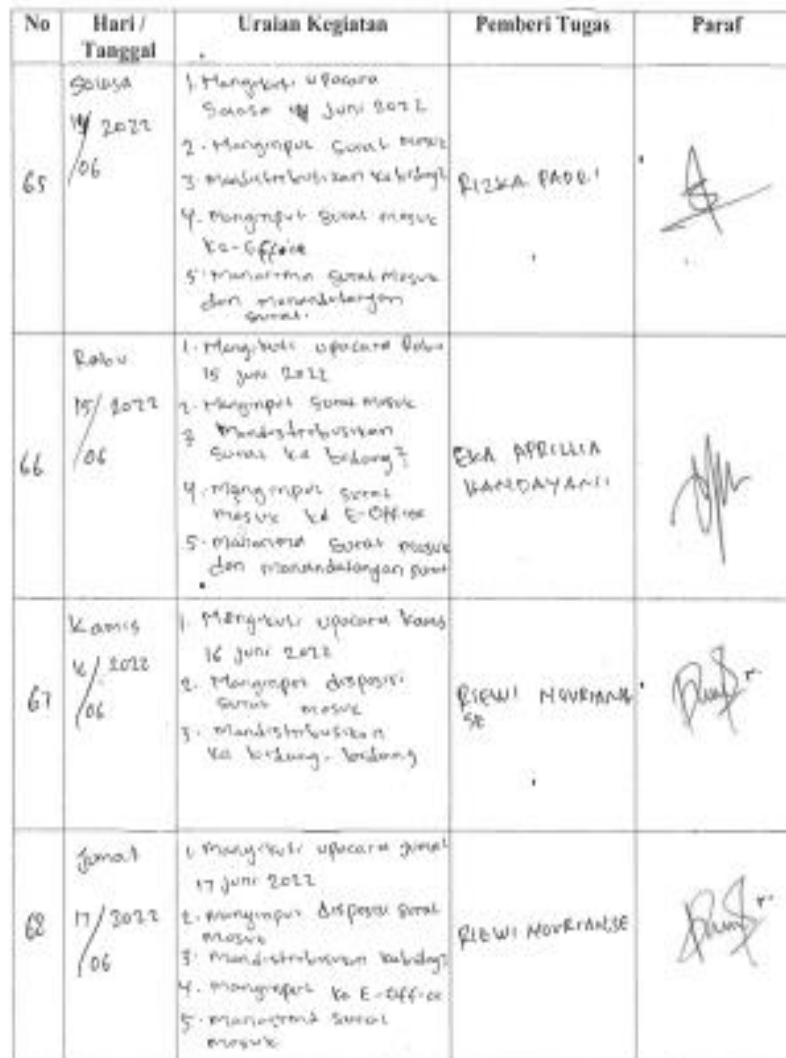 No Hari / Tanggal Uraian Kegiatan Pemberi Tugas Paraf
65
Selasa
14/06 2022
1. Mengikuti upacara
Selasa 14 Juni 2022
2. Menginput Surat masuk
3. Mendistribusikan kebidang2
4. Menginput Surat masuk
ke-Office
5. Menerima Surat Masuk
dan menandatangan
surat.
RIZKA PADRI
66
Rabu
15/06 2022
1. Mengikuti upacara Rabu
15 Juni 2022
2. Menginput Surat Masuk
3. Mendistribusikan
Surat ke bidang2
4. Menginput surat
masuk ke E-Office
5. Menerima Surat masuk
dan menandatangan surat
EKA APRILLIA
HANDAYANI
67
Kamis
16/06 2022
1. Mengikuti upacara Kamis
16 Juni 2022
2. Menginput disposisi
surat masuk
3. Mendistribusikan
ke bidang-bidang
RIEWI NOVRIAN
SE
68
Jumat
17/06 2022
1. Mengikuti upacara Jumat
17 Juni 2022
2. menginput disposisi surat
masuk
3. Mendistribusikan kebidang2
4. Menginput ke E-Office
5. Menerima surat
masuk
RIEWI NOVRIAN.SE